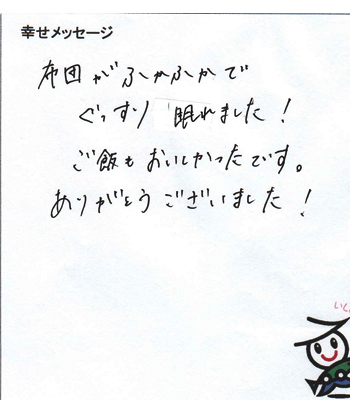 幸せメッセージ
布団がふかふかで
ぐっすり眠れました!
ご飯もおいしかったです。
ありがとうございました!